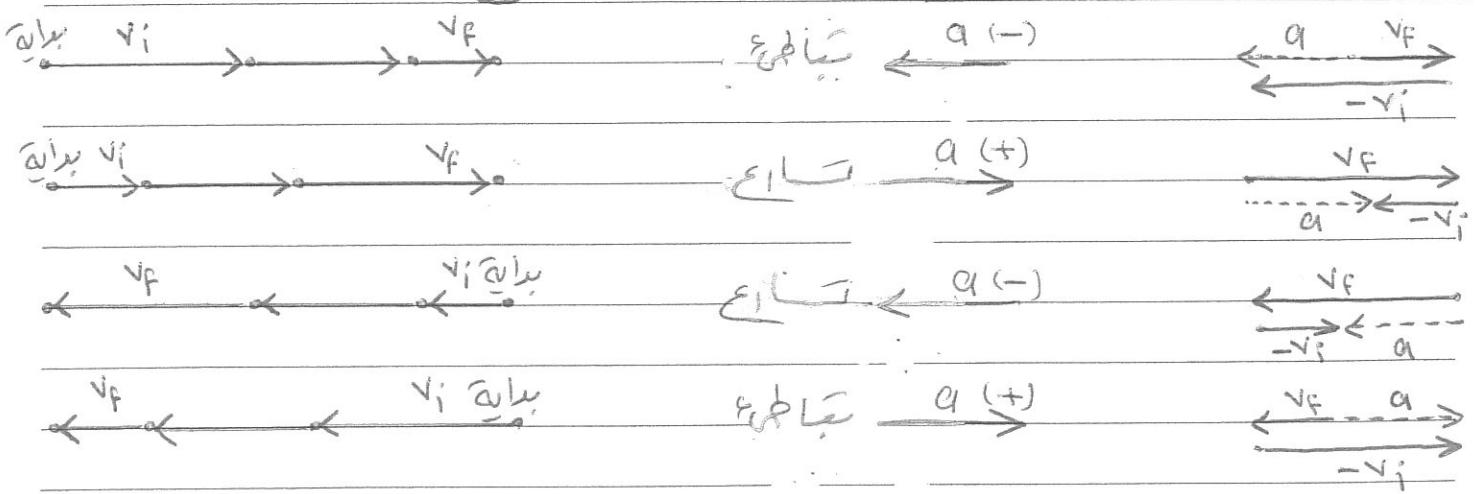 بداية vi vf تباطؤ a (-) a vf
-vi
بداية vi vf تسارع a (+) vf
a -vi
vf vi بداية تسارع a (-) vf
-vi a
vf vi بداية تباطؤ a (+) vf a
-vi